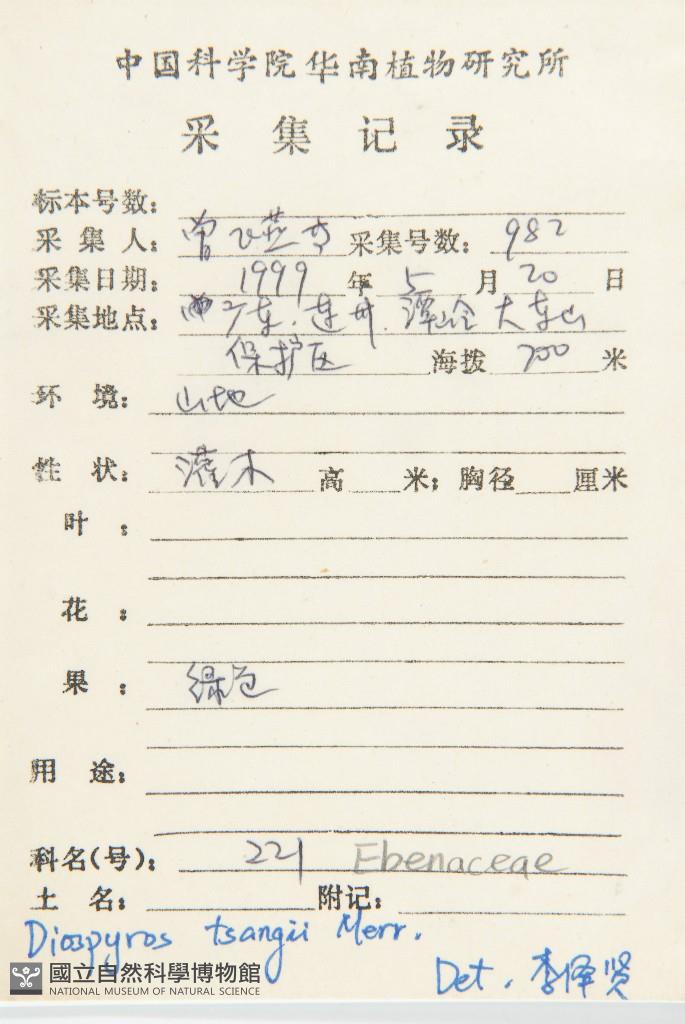 中国科学院华南植物研究所
采集记录
标本号数:
采集人: 曾飞燕 采集号数: 982
采集日期: 1999 年 5 月 20 日
采集地点: 广东. 连州. 潭岭 大东山
保护区 海拨 700 米
环境: 山地
性状: 灌木 高 米; 胸径 厘米
叶:
花:
果: 绿色
用途:
科名(号): 221 Ebenaceae
土名: 附记:
Diospyros tsangii Merr.
Det. 李泽贤
國立自然科學博物館
NATIONAL MUSEUM OF NATURAL SCIENCE